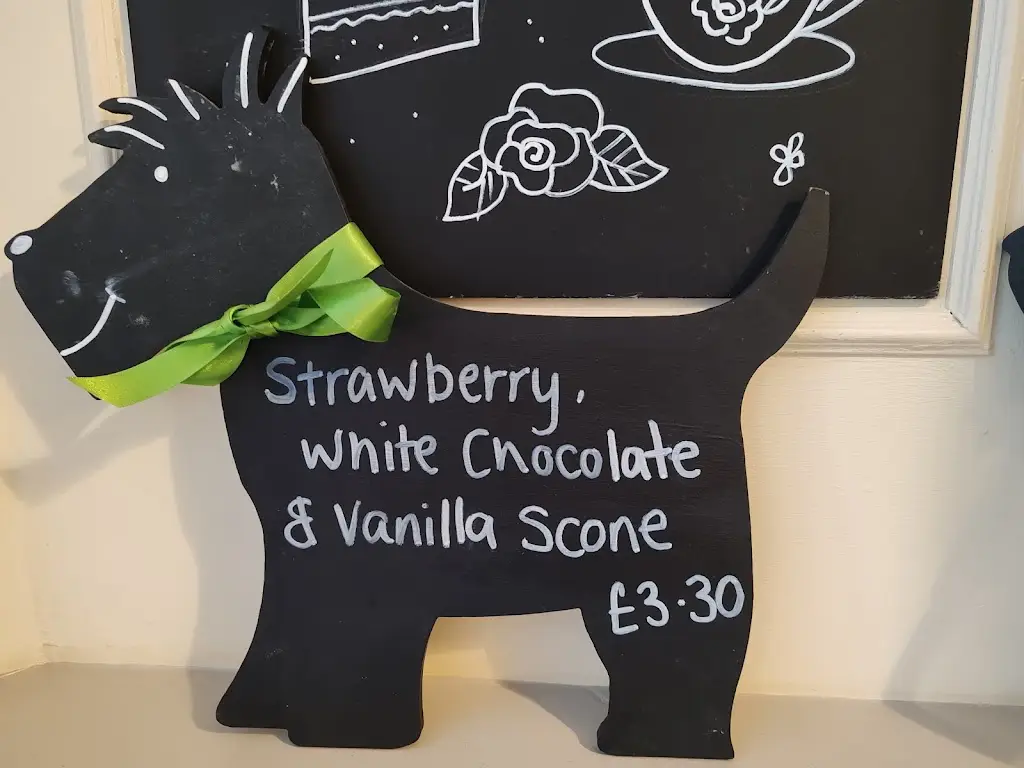 Strawberry.
White Chocolate
& Vanilla Scone
£3.30